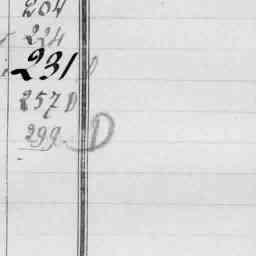 204
224
231 D
257 D
299. D